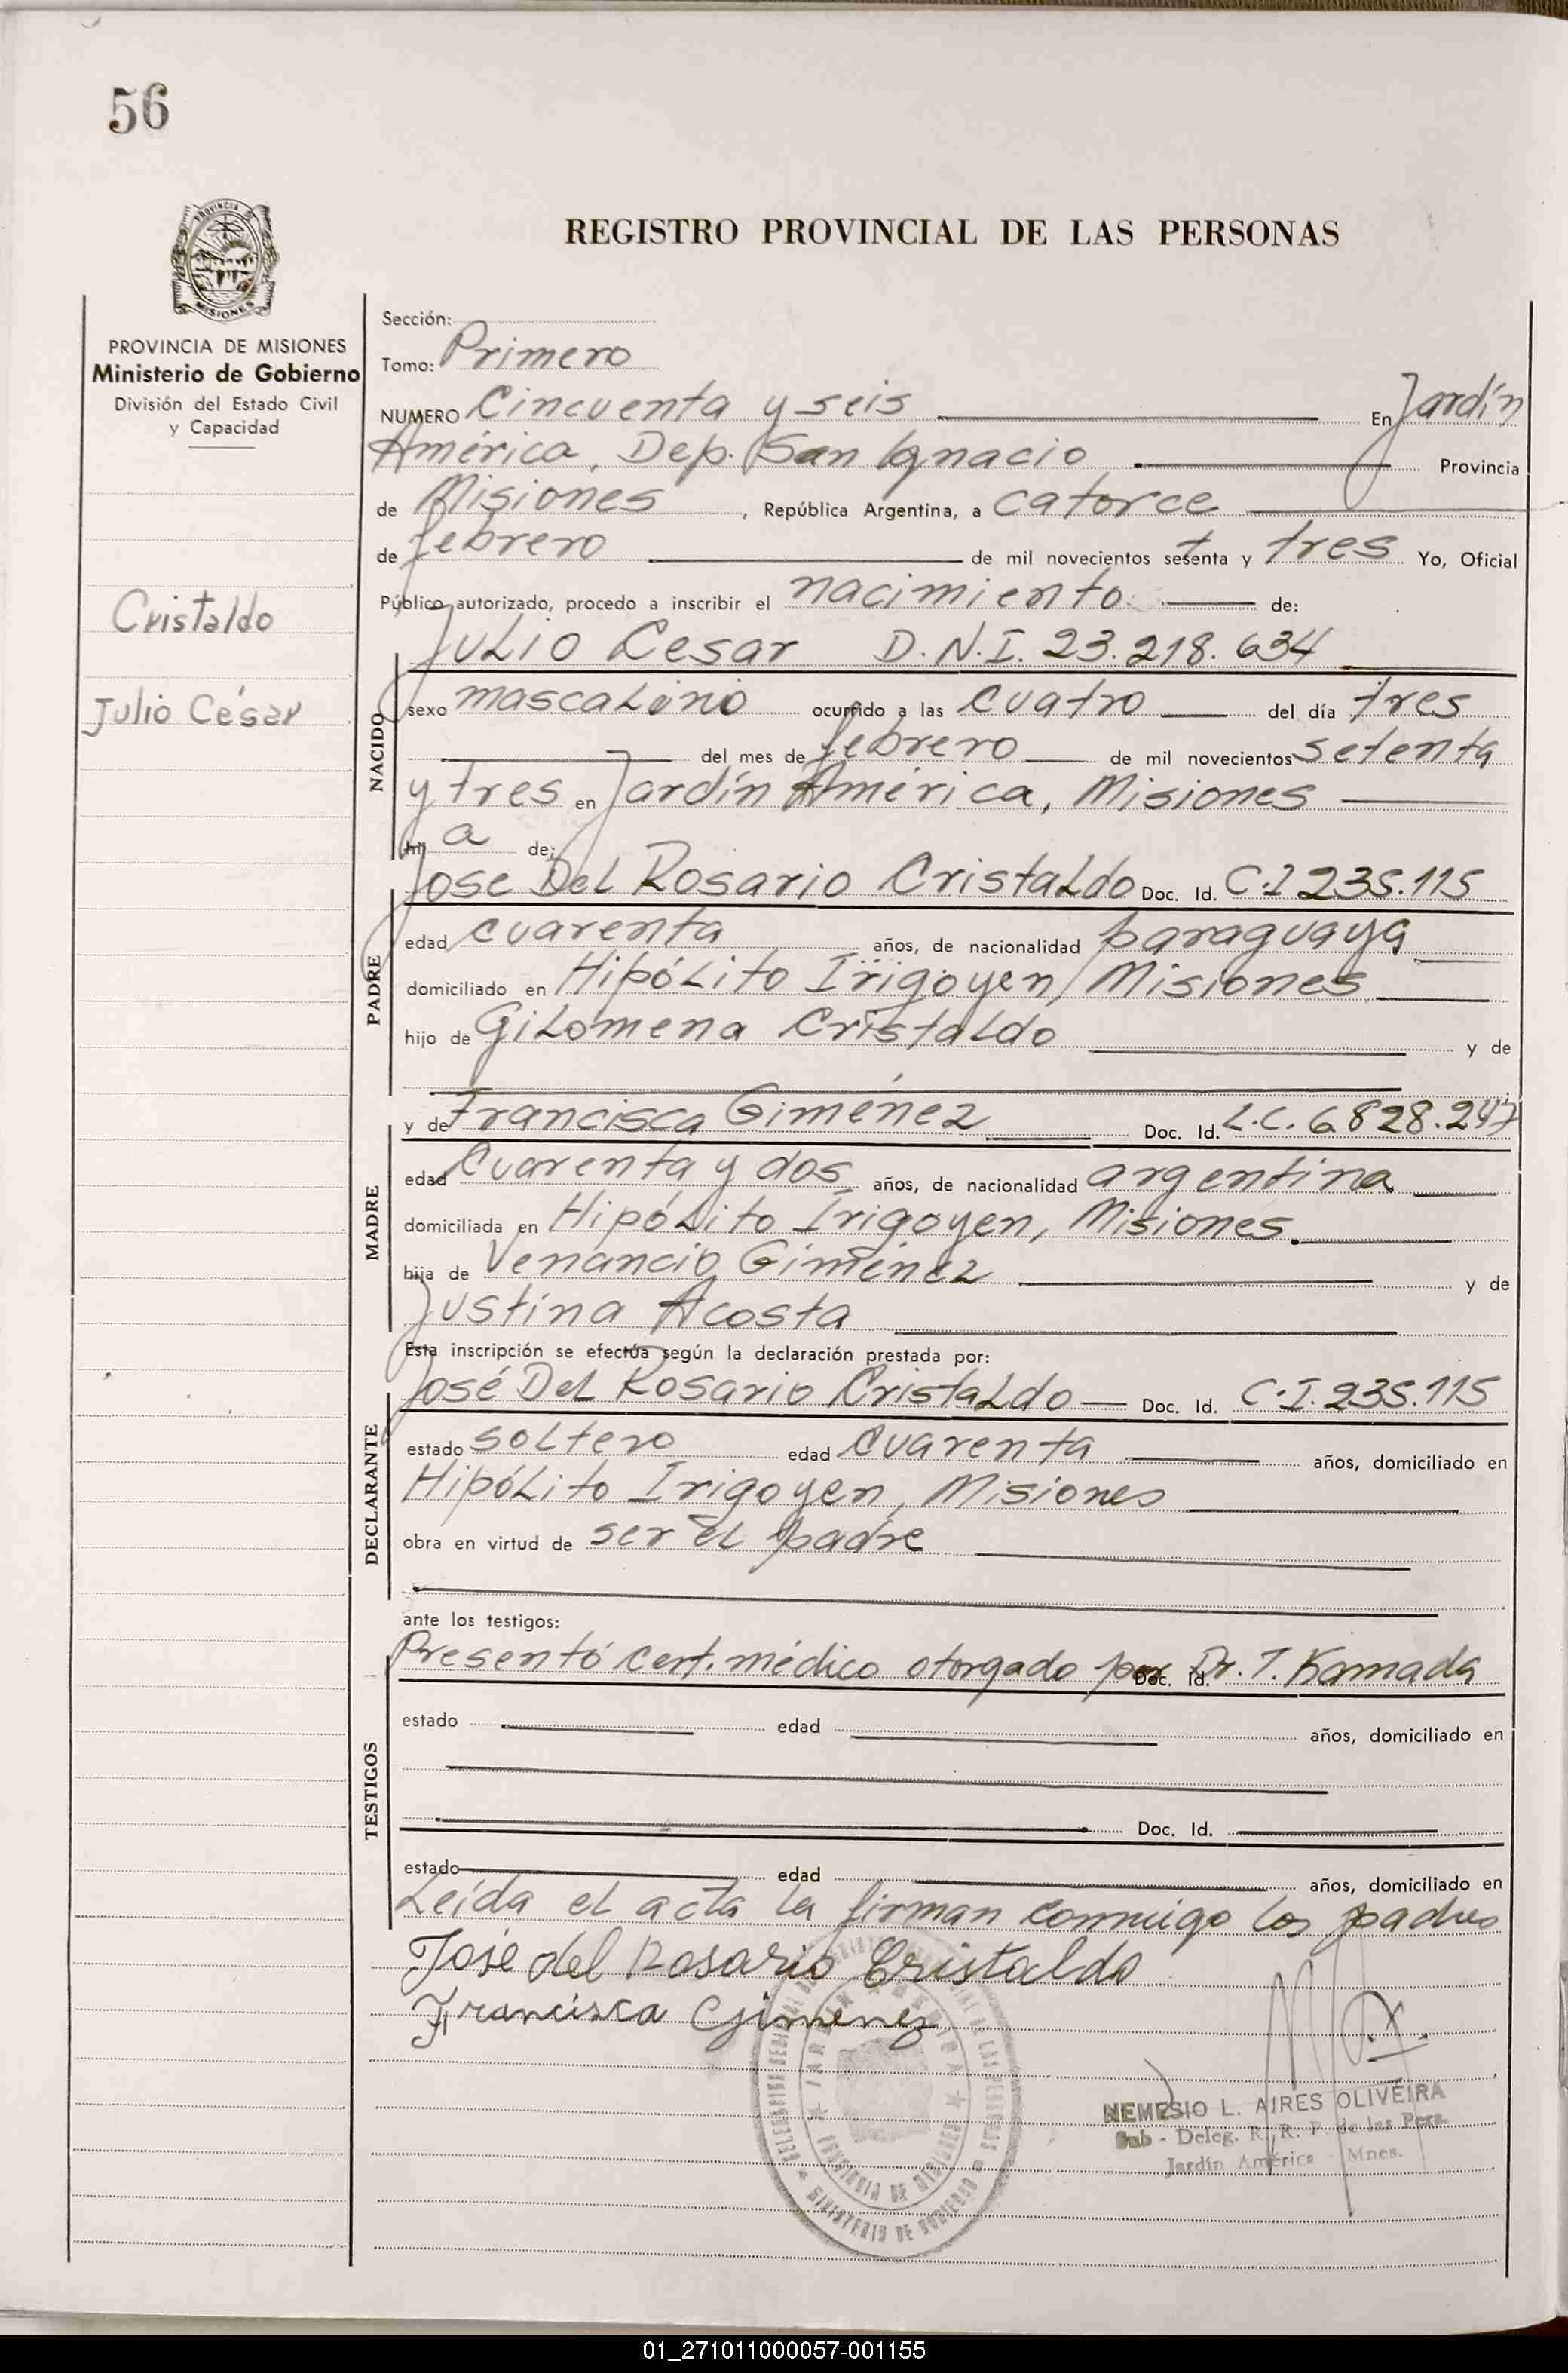 56
PROVINCIA DE
MISIONES
REGISTRO PROVINCIAL DE LAS PERSONAS
PROVINCIA DE MISIONES
Ministerio de Gobierno
División del Estado Civil
y Capacidad
Cristaldo
Julio César
Sección:
Tomo: Primero
NUMERO Cincuenta y seis En Jardín
América, Dep. San Ignacio Provincia
de Misiones, República Argentina, a catorce
de febrero de mil novecientos setenta y tres Yo, Oficial
Público autorizado, procedo a inscribir el nacimiento de:
JULIO Cesar D.N.I. 23.218.634
NACIDO
sexo mascaLino ocurrido a las cuatro del día tres
del mes de febrero de mil novecientos setenta
y tres en Jardín América, Misiones
hij a de:
PADRE
Jose Del Rosario Cristaldo Doc. Id. C.I 235.115
edad cuarenta años, de nacionalidad paraguaya
domiciliado en Hipólito Irigoyen, Misiones
hijo de Gilomena Cristaldo y de
MADRE
y de Francisca Giménez Doc. Id. L.C. 6.828.247
edad Cuarenta y dos años, de nacionalidad argentina
domiciliada en Hipólito Irigoyen, Misiones.
hija de Venancio Giménez y de
Justina Acosta
Esta inscripción se efectúa según la declaración prestada por:
DECLARANTE
José Del Rosario Cristaldo Doc. Id. C.I. 235.115
estado soltero edad cuarenta años, domiciliado en
Hipólito Irigoyen, Misiones
obra en virtud de ser el padre
ante los testigos:
TESTIGOS
Presentó cert. médico otorgado por Doc. Id. Dr. T. Kamada
estado edad años, domiciliado en
Doc. Id.
estado edad años, domiciliado en
Leída el acta la firman conmigo los padres
José del Rosario Cristaldo
Francisca Gimenez
JARDIN AMERICA
PROVINCIA DE MISIONES
MINISTERIO DE GOBIERNO
NEMESIO L. AIRES OLIVEIRA
Sub - Deleg. R. R. P. de las Pers.
Jardín América - Mnes.
01_271011000057-001155